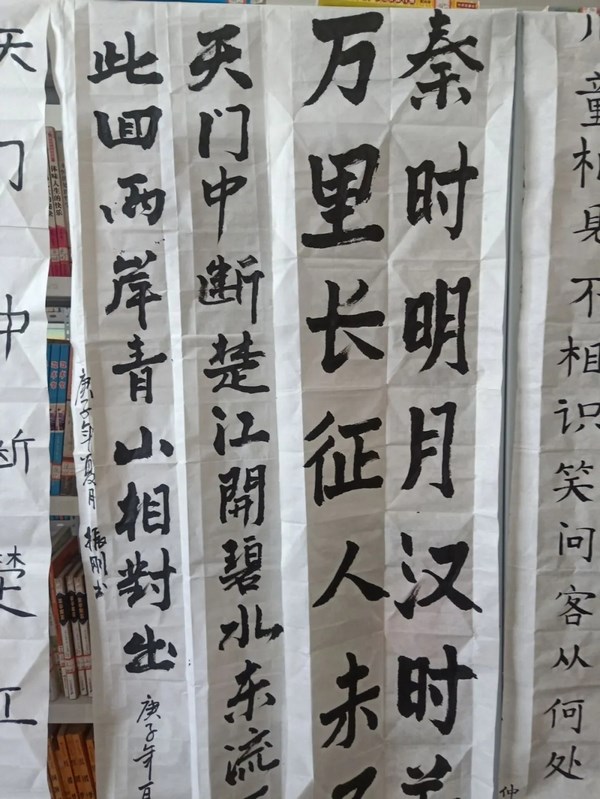 童相见不相识笑问客从何处
仲
秦时明月汉时
万里长征人未
天门中断楚江開碧水东流
此回两岸青山相對出
庚子年夏
庚子年夏月 振刚书
天门中断楚江